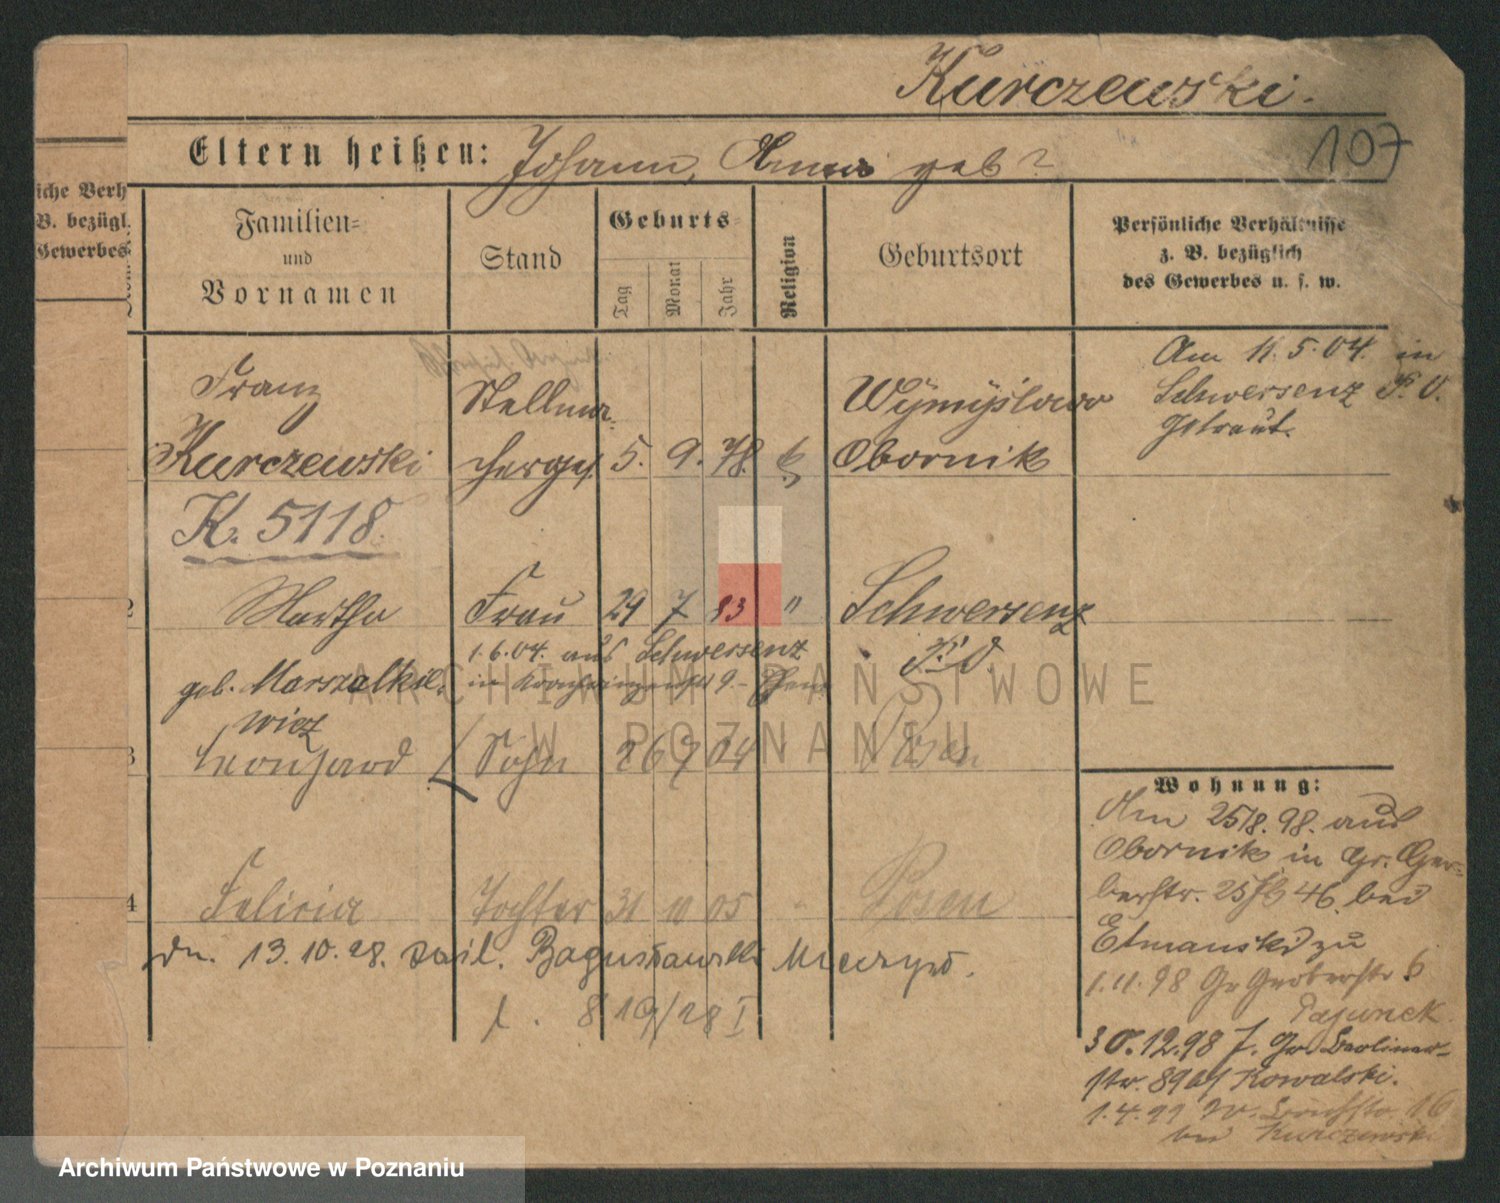 Kurczewski.
107
Eltern heißen: Johann, Anna geb?
iche Verh
B. bezügl
Gewerbes
Familien-
und
Vornamen
Stand
Geburts-
Tag
Monat
Jahr
Religion
Geburtsort
Persönliche Verhältnisse
z. B. bezüglich
des Gewerbes u. s. w.
Franz
Kurczewski
Stellma-
cherges.
5. 9. 78.
Wymysłowo
Obornik
Am 11.5.04. in
Schwersenz P. O.
getraut.
K. 5118.
2
Martha
geb. Marszalkie-
wicz
Frau
29 7 83 "
Schwersenz
P. O.
1.6.04. aus Schwersenz
in
3
Leonhard
Sohn
26 7 04
Posen
4
Felicia
Tochter
31 10 05
Posen
dn. 13.10.28. Bogusławski Mieczysł.
l. 819/28 I
Wohnung:
Am 25/8.98. aus
Obornik in Gr. Ger-
berstr. 46 bei
Etmanski zu
1.11.98 Gr Gerberstr 6
Pajunck
30.12.98 J. Gr Berliner-
str. 89 Kowalski.
1.4.99 16
bei Kurczewski
ARCHIWUM PAŃSTWOWE
W POZNANIU
Archiwum Państwowe w Poznaniu